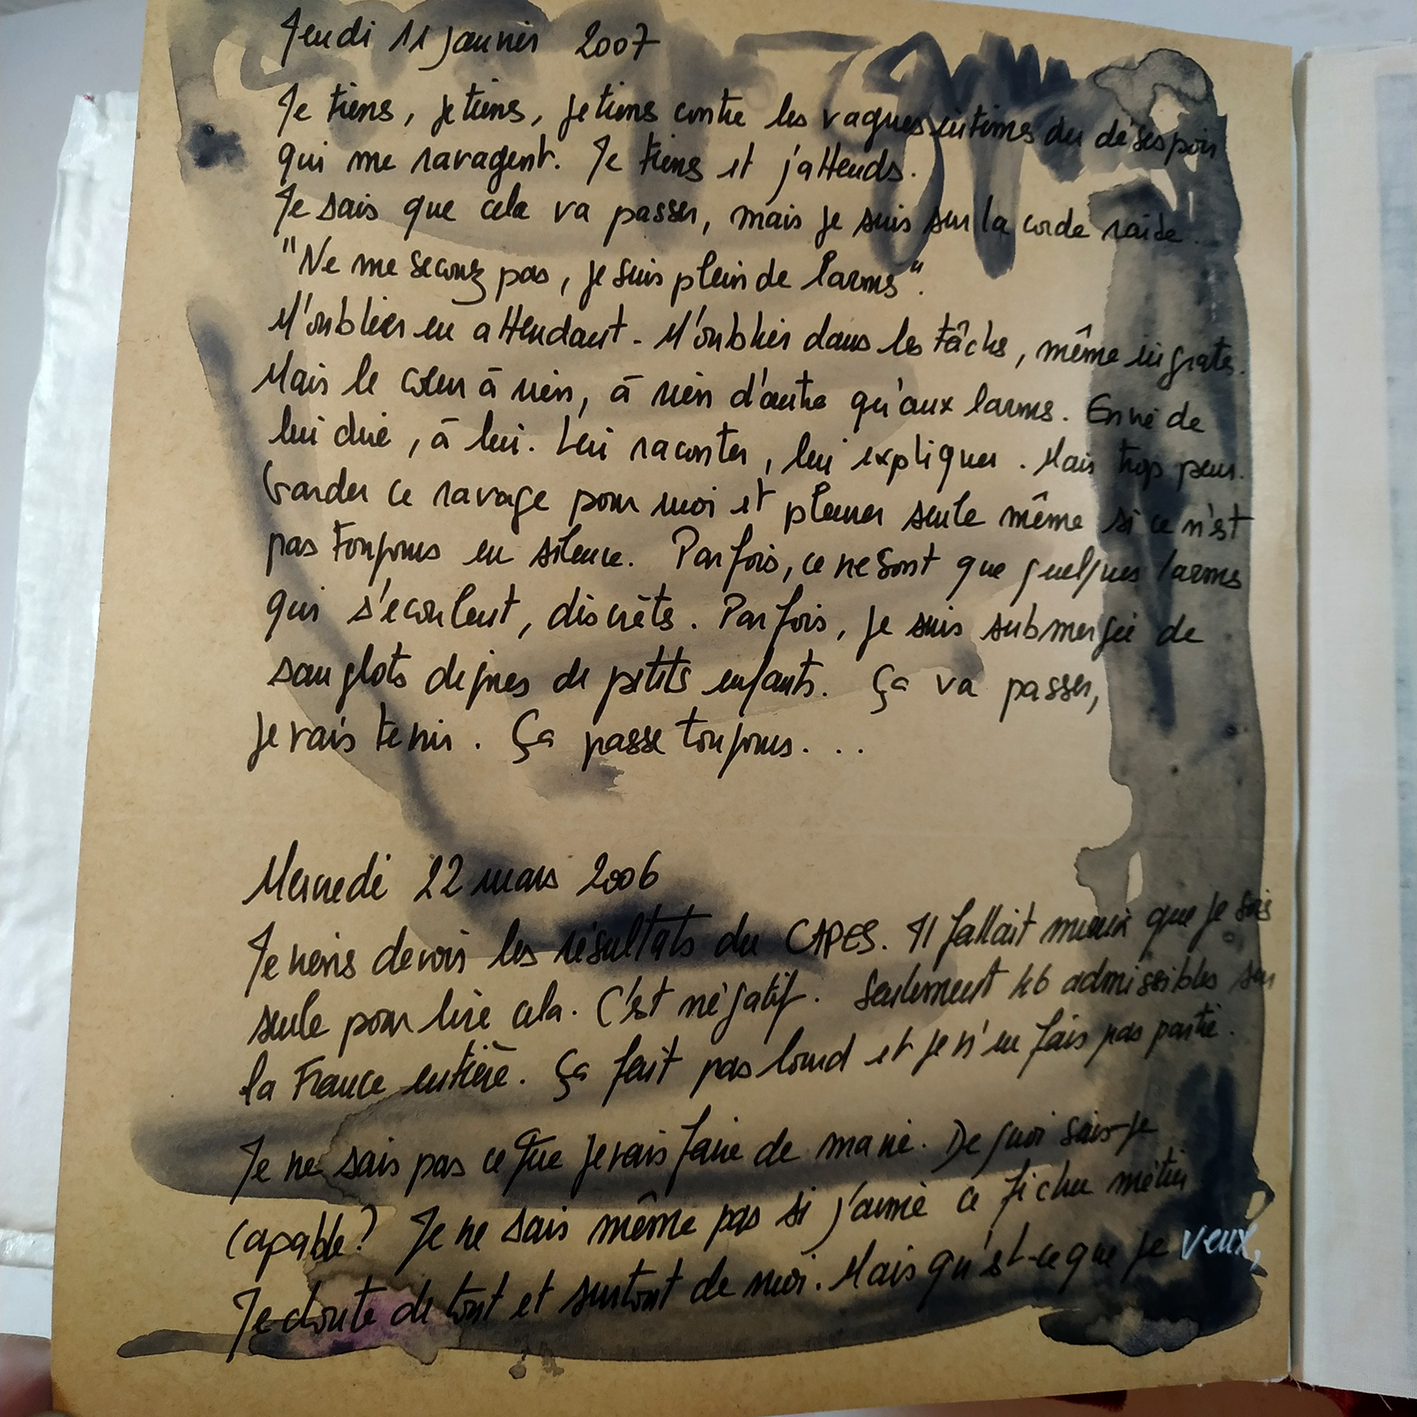 Jeudi 11 janvier 2007
Je tiens, je tiens, je tiens contre les vagues intimes du désespoir
qui me ravagent. Je tiens et j'attends.
Je sais que cela va passer, mais je suis sur la corde raide.
"Ne me secouez pas, je suis plein de larmes".
M'oublier en attendant - M'oublier dans les tâches, même ingrates.
Mais le cœur à rien, à rien d'autre qu'aux larmes. Envie de
lui dire, à lui. Lui raconter, lui expliquer. Mais trop peur.
Garder ce ravage pour moi et pleurer seule même si ce n'est
pas toujours en silence. Parfois, ce ne sont que quelques larmes
qui s'écoulent, discrètes. Parfois, je suis submergée de
sanglots dignes de petits enfants. Ça va passer,
je vais tenir. Ça passe toujours...
Mercredi 22 mars 2006
Je viens de voir les résultats du CAPES. Il fallait mieux que je sois
seule pour lire cela. C'est négatif. Seulement 46 admissibles sur
la France entière. Ça fait pas lourd et je n'en fais pas partie.
Je ne sais pas ce que je vais faire de ma vie. De quoi suis-je
capable? Je ne sais même pas si j'aime ce fichu métier
Je doute de tout et surtout de moi. Mais qu'est-ce que je veux,